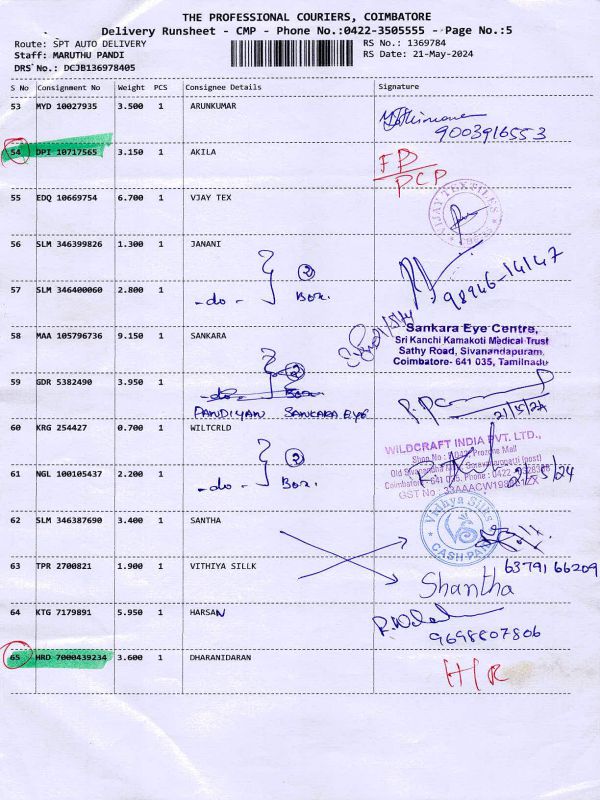 THE PROFESSIONAL COURIERS, COIMBATORE
Delivery Runsheet - CMP - Phone No.:0422-3505555 - Page No.:5
Route: SPT AUTO DELIVERY
Staff: MARUTHU PANDI
DRS No.: DCJB136978405
RS No.: 1369784
RS Date: 21-May-2024
S No Consignment No Weight PCS Consignee Details Signature
53 MYD 10027935 3.500 1 ARUNKUMAR
9003916553
54 DPI 10717565 3.150 1 AKILA
FP
PCP
55 EDQ 10669754 6.700 1 VJAY TEX
VIJAY TEXTILES
56 SLM 346399826 1.300 1 JANANI
② Box.
98946-14147
57 SLM 346400060 2.800 1 -do-
58 MAA 105796736 9.150 1 SANKARA
Sankara Eye Centre,
Sri Kanchi Kamakoti Medical Trust
Sathy Road, Sivanandapuram,
Coimbatore- 641 035, Tamilnadu
②
59 GDR 5382490 3.950 1 -do- Box
PANDIYAN SANKARA EYE
21/5/24
60 KRG 254427 0.700 1 WILTCRLD
WILDCRAFT INDIA PVT. LTD.,
② Box.
61 NGL 100105437 2.200 1 -do-
62 SLM 346387690 3.400 1 SANTHA
Vidhya Silks
CASH PAID
63 TPR 2700821 1.900 1 VITHIYA SILLK
6379166209
Shantha
64 KTG 7179891 5.950 1 HARSAN
9698807806
65 HRD 7000439234 3.600 1 DHARANIDARAN
H/R